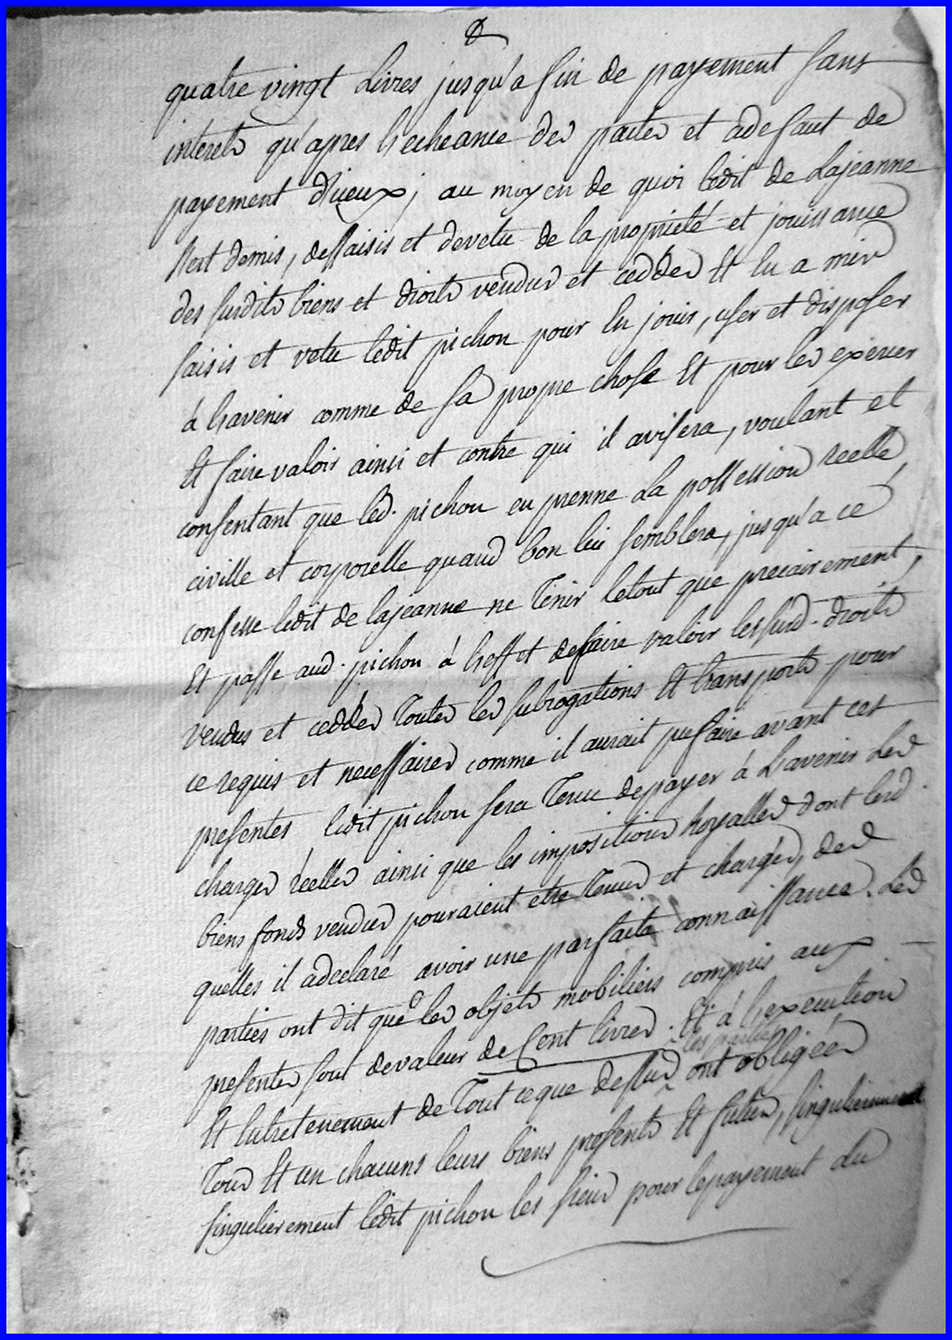 8
quatre vingt Livres jusqu'a fin de payement sans
interets qu'apres l'echeance des pactes et adefaut de
payement d'iceux; au moyen de quoi ledit de Lajeanne
s'est demis, dessaisis et devetu de la propriété et jouissance
des susdits biens et droits vendus et ceddés Et En a mis
saisis et vetu ledit pichon pour En jouir, user et disposer
à L'avenir comme de sa propre chose Et pour les exercer
Et faire valoir ainsi et contre qui il avisera, voulant et
consentant que led. pichon en prenne La possession reelle
civille et corporelle quand bon lui semblera, jusqu'a ce
confesse ledit de lajeanne ne Tenir letout que precairement,
Et passe aud. pichon à L'effet defaire valoir lessusd. droits
vendus et ceddés Toutes les subrogations Et transports pour
ce requis et necessaires comme il aurait pu faire avant ces
presentes ledit pichon sera Tenu depayer à L'avenir Les
charges reelles ainsi que les impositions Royalles dont lesd.
biens fonds vendus pouraient etre Tenus et chargés, des
quelles il adeclaré avoir une parfaite connaissance. Les
parties ont dit que les objets mobiliers compris aux
presentes sont devaleur de Cent livres. Et à L'execution
les parties
Et Entretenement de Tout ceque dessus ont obligées
Tous Et un chacuns leurs biens presents Et futurs,
singulierement ledit pichon les siens pour lepayement du